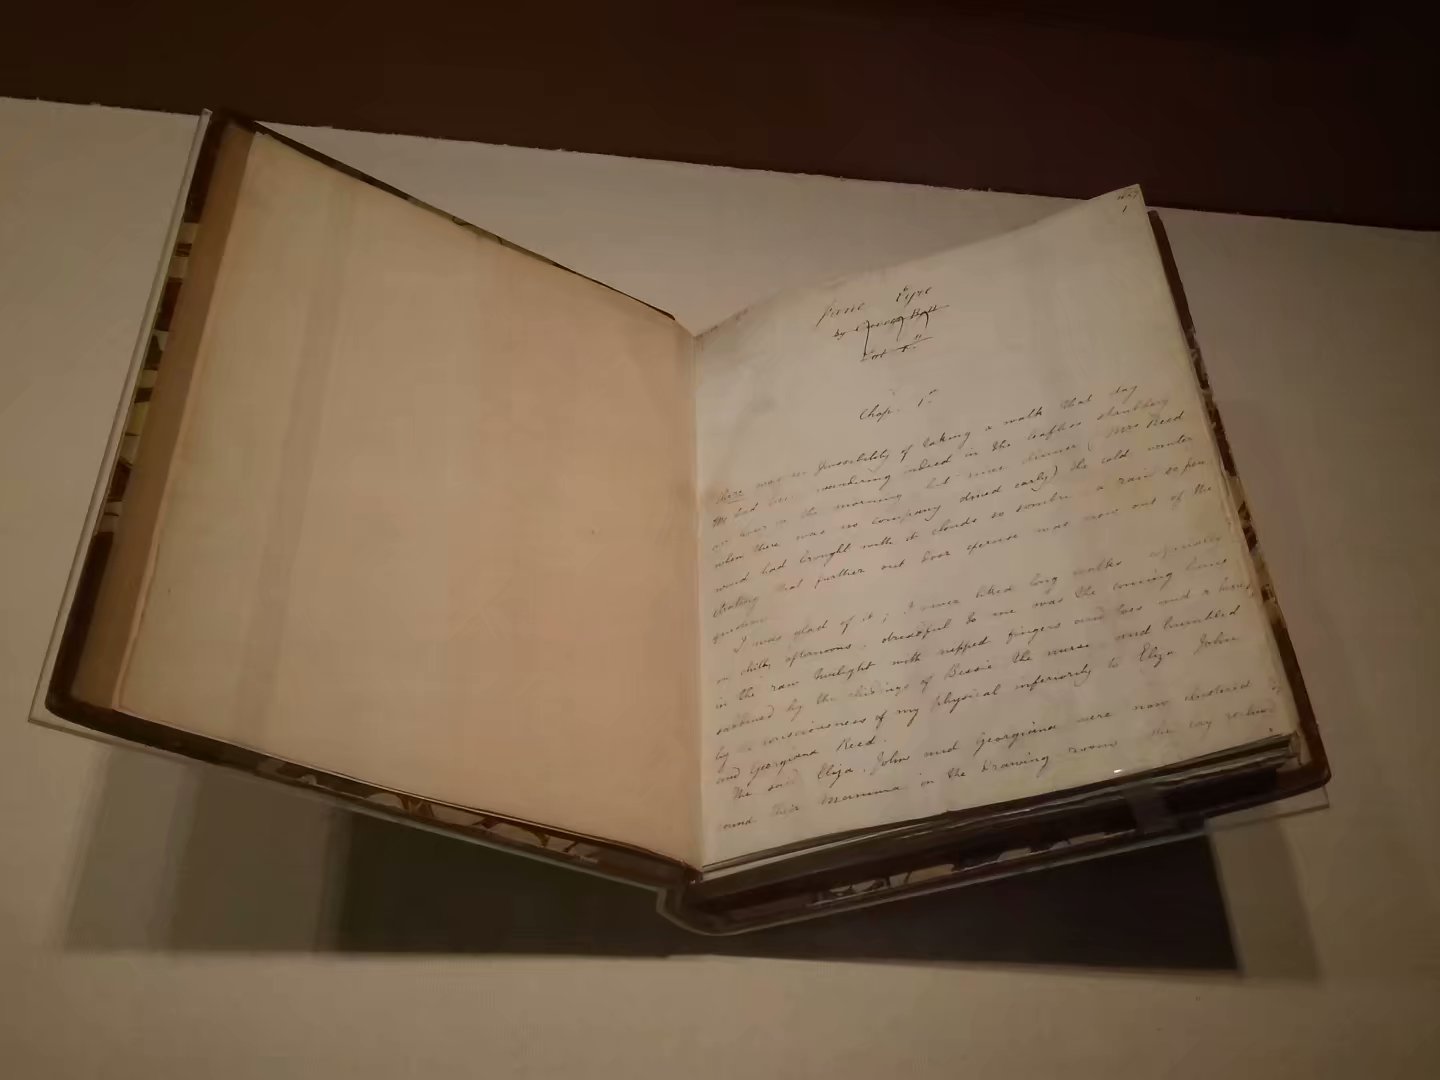 1
Jane Eyre
by Currer Bell
Vol. 1st
Chap. 1st
There was no possibility of taking a walk that day.
We had been wandering indeed in the leafless shrubbery
an hour in the morning but since dinner (Mrs Reed
when there was no company dined early) the cold winter
wind had brought with it clouds so sombre a rain so pene
trating that further out door exercise was now out of the
question
I was glad of it; I never liked long walks especially
on chilly afternoons; dreadful to me was the coming home
in the raw twilight with nipped fingers and toes and a heart
saddened by the chidings of Bessie the nurse and humbled
by a consciousness of my physical inferiority to Eliza John
and Georgiana Reed.
The said Eliza, John and Georgiana were now clustered
round their Mamma in the drawing room she lay reclined